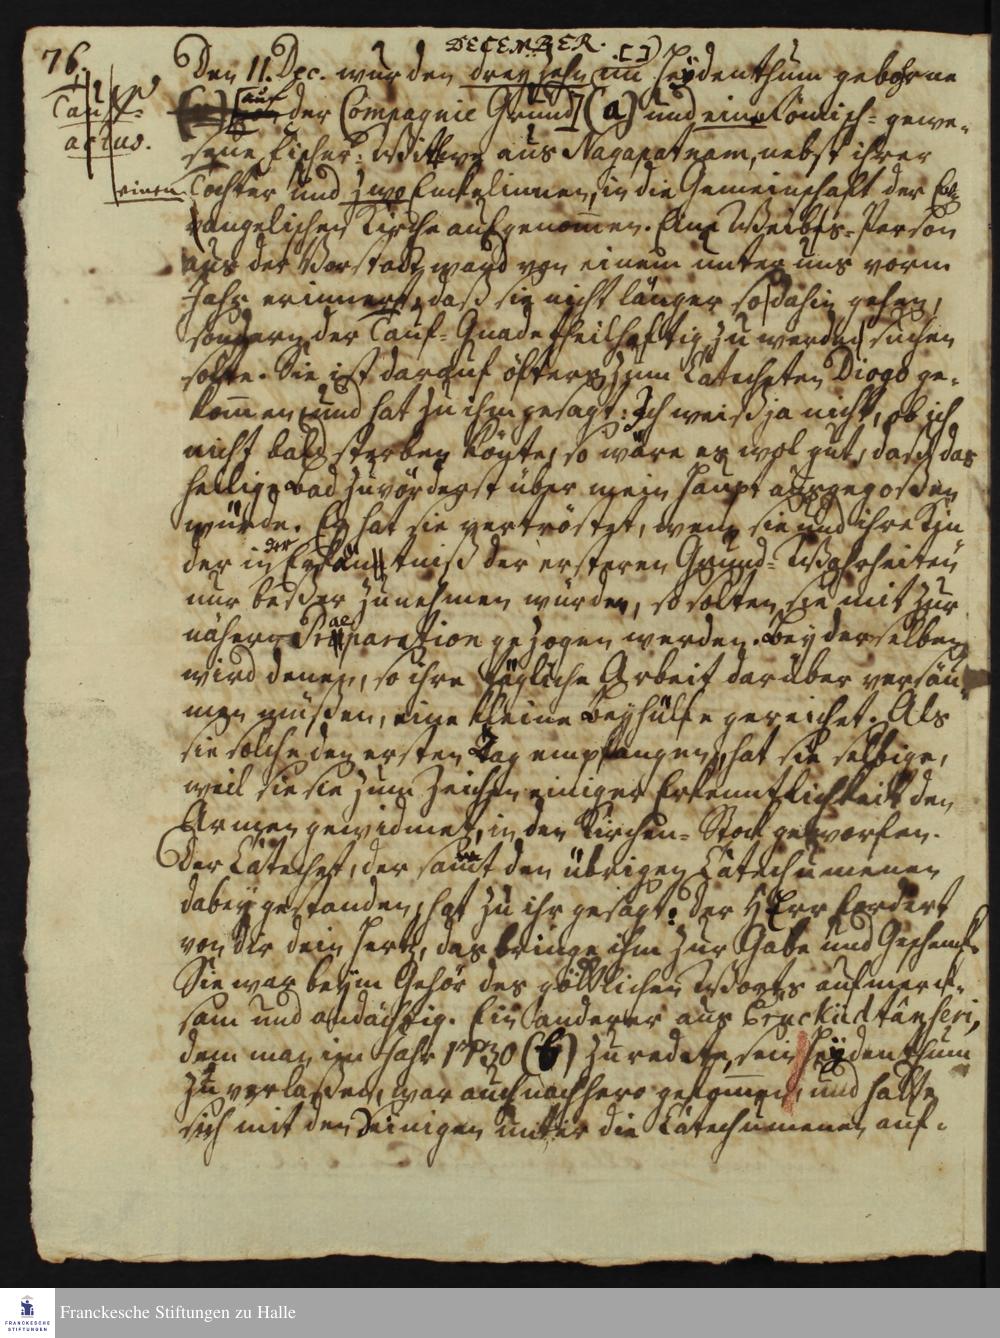 DECEMBER.
76.
Tauf-
actus.
einen
Den 11. Dec. wurden dreyzehn im Heydenthum gebohrne
auf der Compagnie Grund] (a) und eine Römisch-gewe-
sene Fischer-Wittwe aus Nagapatnam, nebst ihrer
Tochter und zwo Enckelinnen, in die Gemeinschaft der Ev-
angelischen Kirche aufgenommen. Eine Weibes-Person
aus der Vorstadt ward von einem unter uns vorm
Jahr erinnert, daß sie nicht länger so dahin gehen,
sondern der Tauf-Gnade theilhaftig zu werden suchen
solte. Sie ist darauf öfters zum Catecheten Diogo ge-
kommen, und hat zu ihm gesagt: Ich weiß ja nicht, ob ich
nicht bald sterben könte, so wäre es wol gut, daß das
heilige Bad zuvörderst über mein Haupt ausgegoßen
würde. Er hat sie vertröstet, wenn sie und ihre Kin-
der in der Erkäntniß der ersteren Grund-Wahrheiten
nur beßer zunehmen würden, so solten sie mit zur
nähern Praeparation gezogen werden. Bey derselben
wird denen, so ihre tägliche Arbeit darüber versäu-
men müßen, eine kleine Beyhülfe gereichet. Als
sie solche den ersten Tag empfangen, hat sie selbige,
weil sie sie zum Zeichen einiger Erkenntlichkeit den
Armen gewidmet, in den Kirchen-Stock geworfen.
Der Catechet, der samt den übrigen Catechumenen
dabey gestanden, hat zu ihr gesagt: Der HErr fordert
von dir dein Hertz, das bringe ihm zur Gabe und Geschenck.
Sie war beym Gehör des göttlichen Worts aufmerck-
sam und andächtig. Ein anderer aus
dem man im Jahr 1730 (b) zuredete, sein Heydenthum
zu verlaßen, war auch nachhero gekommen, und hatte
sich mit den Seinigen unter die Catechumenen auf-
FRANCKESCHE
STIFTUNGEN
Franckesche Stiftungen zu Halle